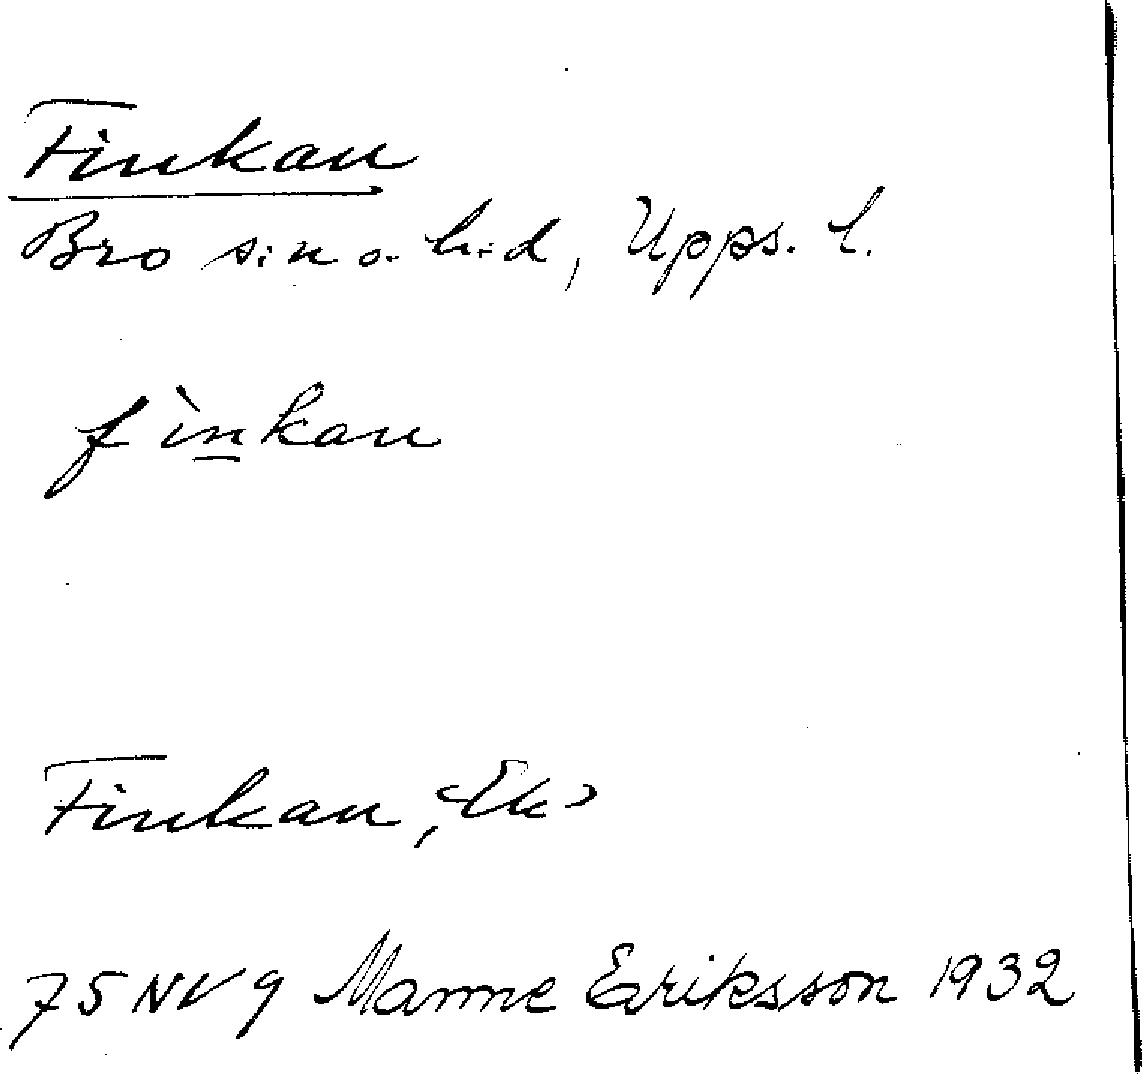 Finkan
Bro s:n o. h:d, Upps. l.
fìnkan
Finkan, Ek
75 NV 9 Manne Eriksson 1932